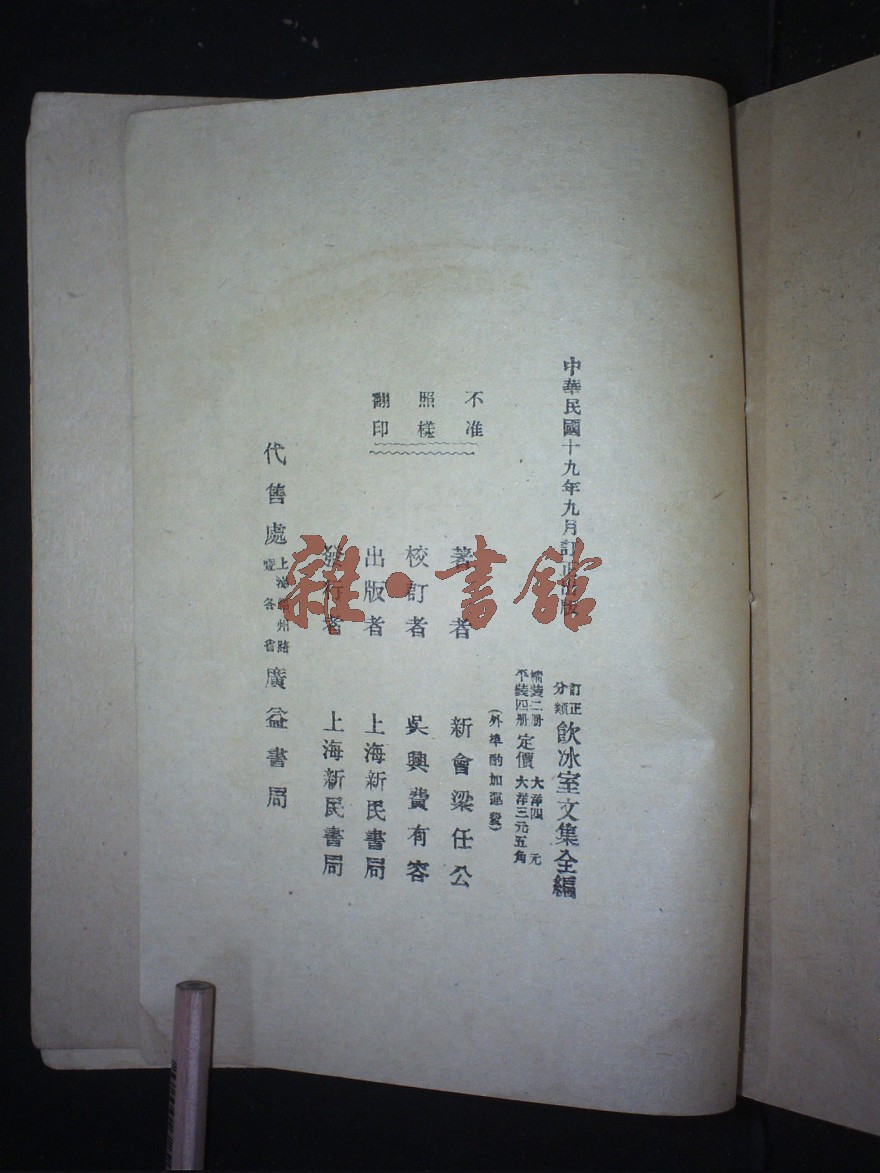 中華民國十九年九月訂正出版
訂正
分類
飲冰室文集全編
精裝二册
平裝四册
定價
大洋四元
大洋三元五角
(外埠酌加運費)
不准
照樣
翻印
著者
新會梁任公
校訂者
吳興費有容
出版者
上海新民書局
發行者
上海新民書局
代售處
上海福州路
各省
廣益書局
雜·書館